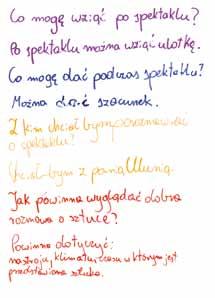 Co mogę wziąć po spektaklu?
Po spektaklu można wziąć ulotkę.
Co mogę dać podczas spektaklu?
Można dać szacunek.
Z kim chciałbym porozmawiać
o spektaklu?
Chciałbym z panią
Jak powinna wyglądać dobra
rozmowa o sztuce?
Powinna dotyczyć:
nastroju, klimatu, czasu w którym jest
przedstawiona sztuka.